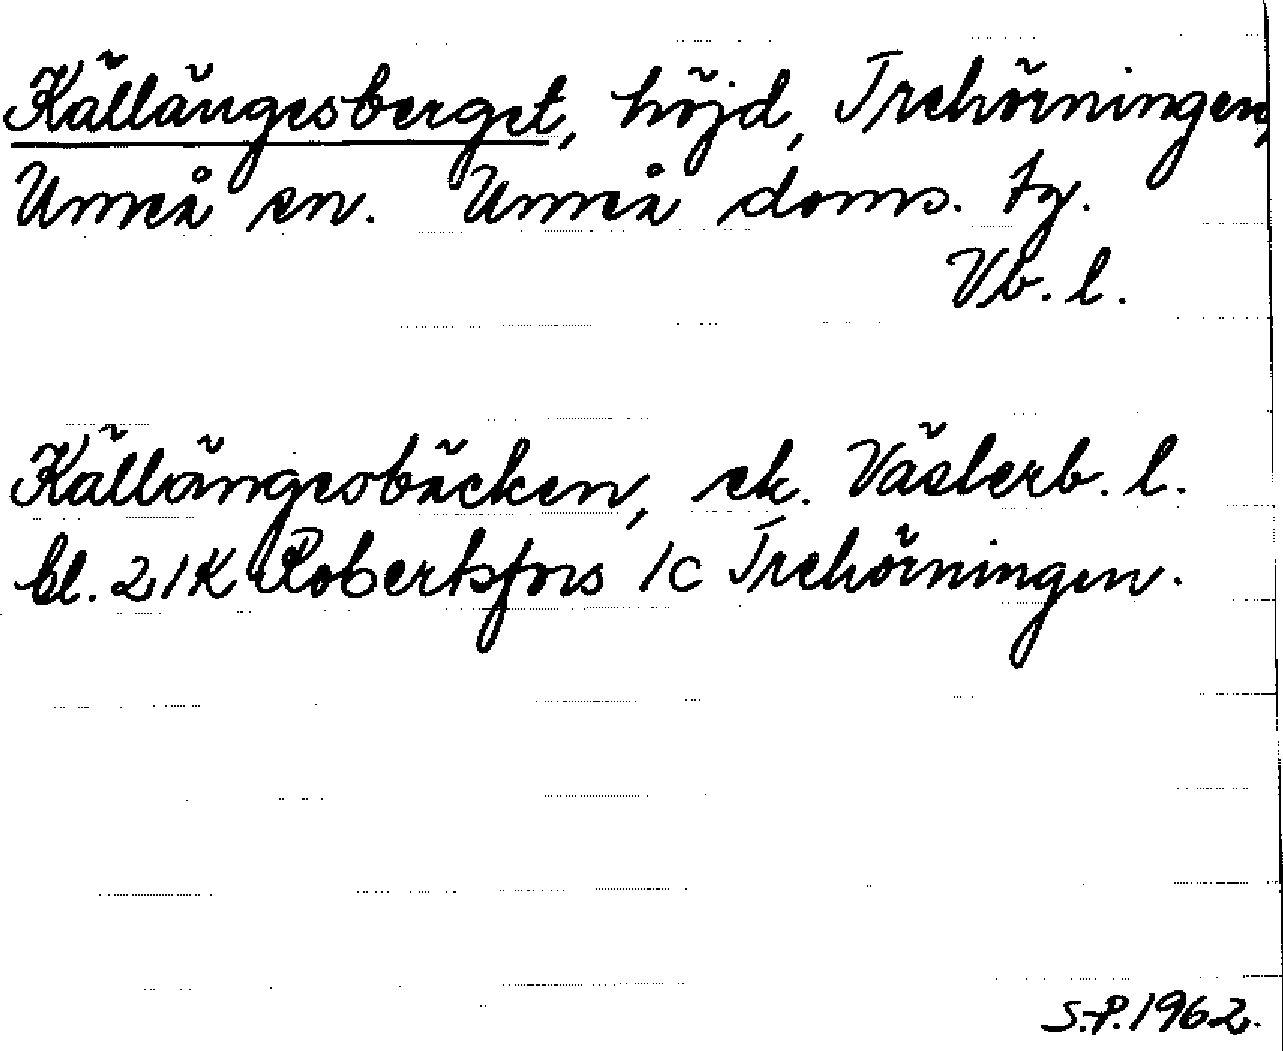 Källängesberget, höjd, Trehörningen,
Umeå sn. Umeå doms. tg.
Vb. l.
Källängesbäcken, ek. Västerb. l.
bl. 21K Robertsfors 1c Trehörningen.
S.P. 1962.